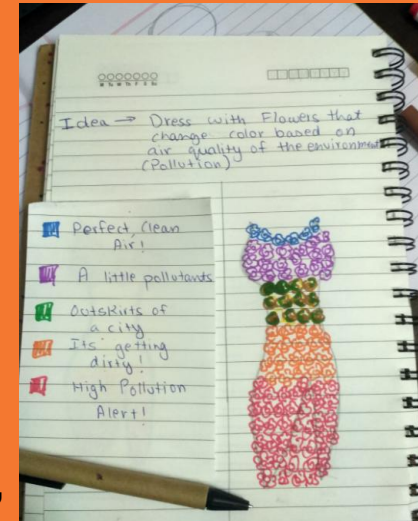 Idea → Dress with Flowers that
change color based on
air quality of the environment
(Pollution)
Perfect, Clean
Air!
A little pollutants
Outskirts of
a city
Its getting
dirty!
High Pollution
Alert!